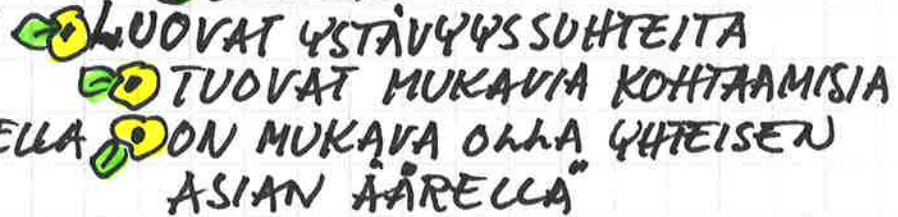 LUOVAT YSTÄVYYSSUHTEITA
TUOVAT MUKAVIA KOHTAAMISIA
ELLA ON MUKAVA OLLA YHTEISEN
ASIAN ÄÄRELLÄ"